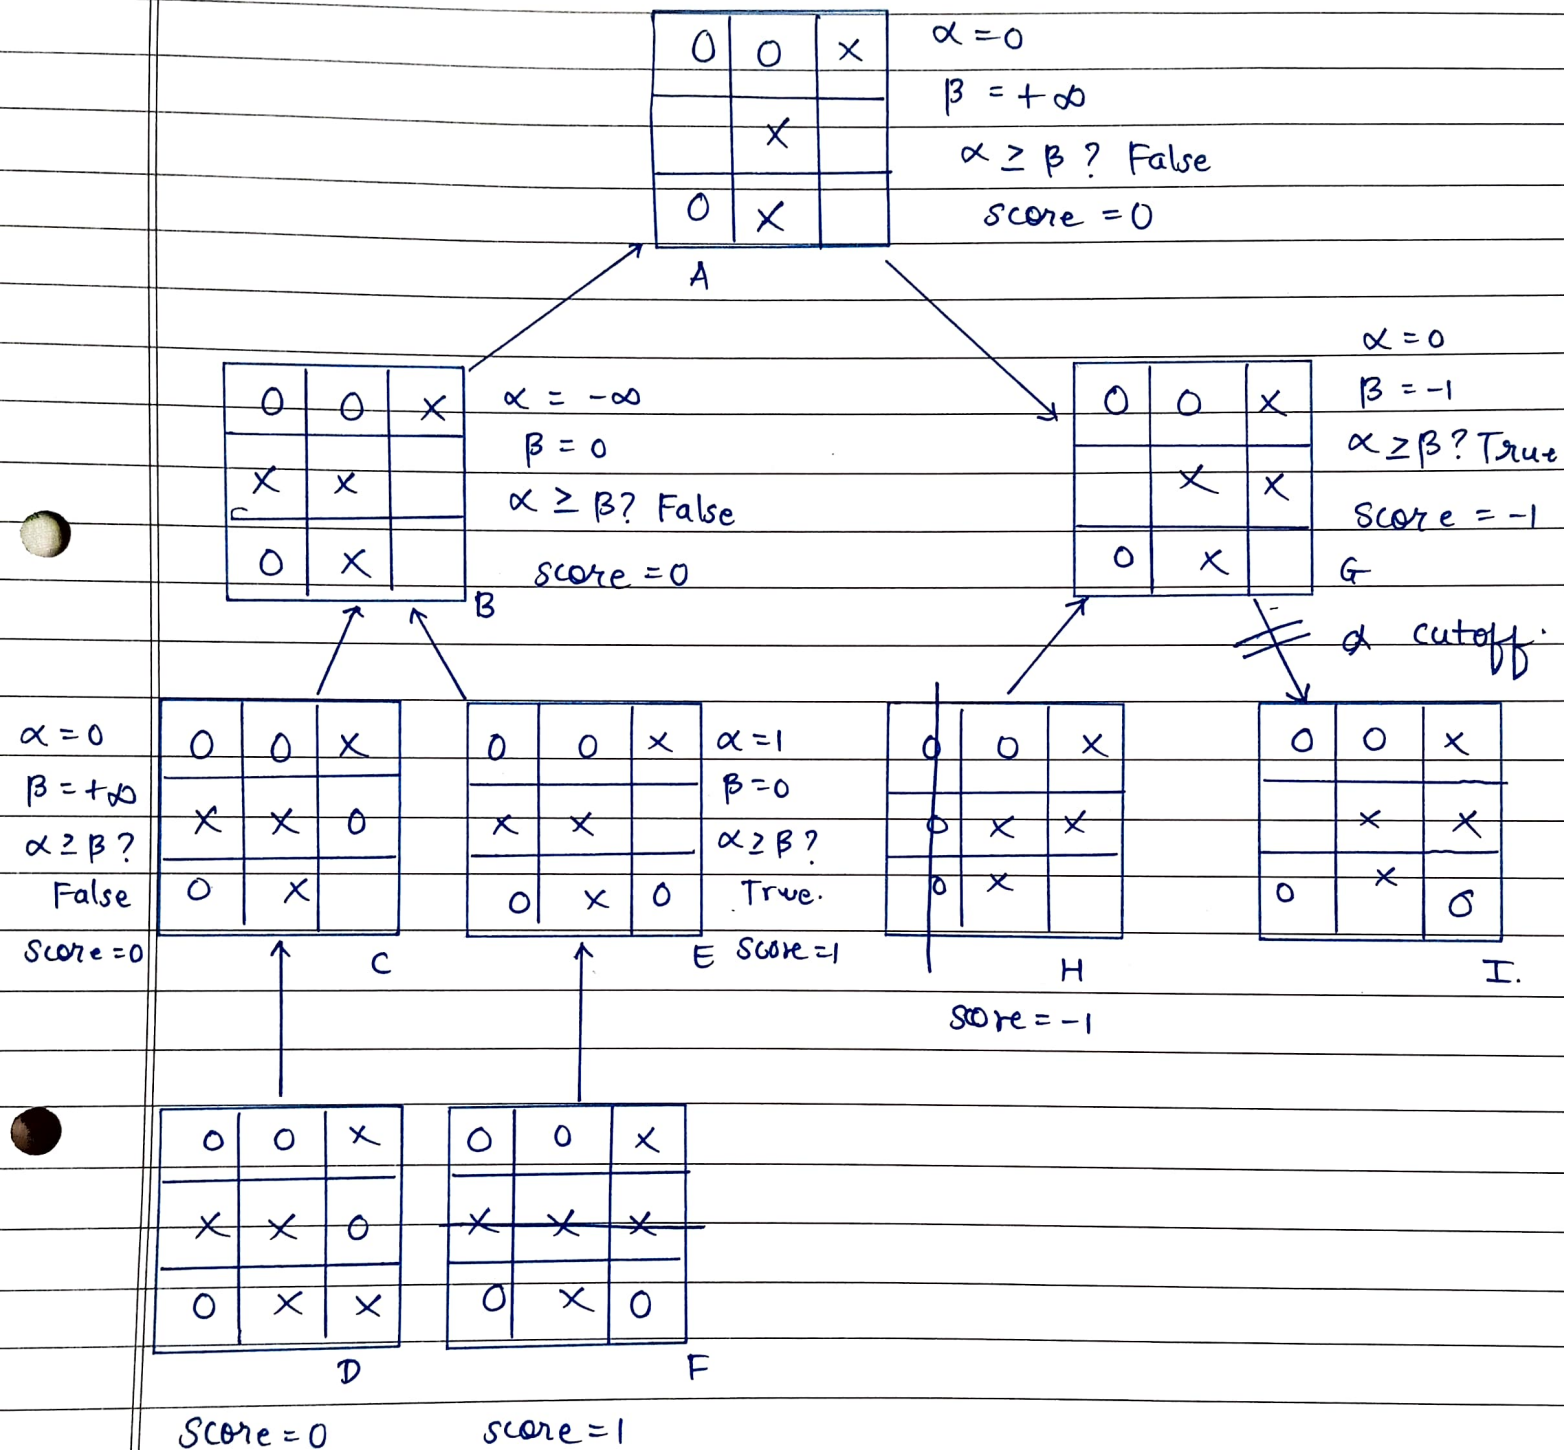 O O X
X
O X
α = 0
β = +∞
α ≥ β ? False
score = 0
A
O O X
X X
O X
α = -∞
β = 0
α ≥ β? False
score = 0
B
O O X
X X
O X
α = 0
β = -1
α ≥ β? True
Score = -1
G
α cutoff.
α = 0
β = +∞
α ≥ β?
False
Score = 0
O O X
X X O
O X
C
O O X
X X
O X O
α = 1
β = 0
α ≥ β?
True.
E Score = 1
O O X
O X X
O X
H
score = -1
O O X
X X
O X O
I.
O O X
X X O
O X X
D
Score = 0
O O X
X X X
O X O
F
score = 1